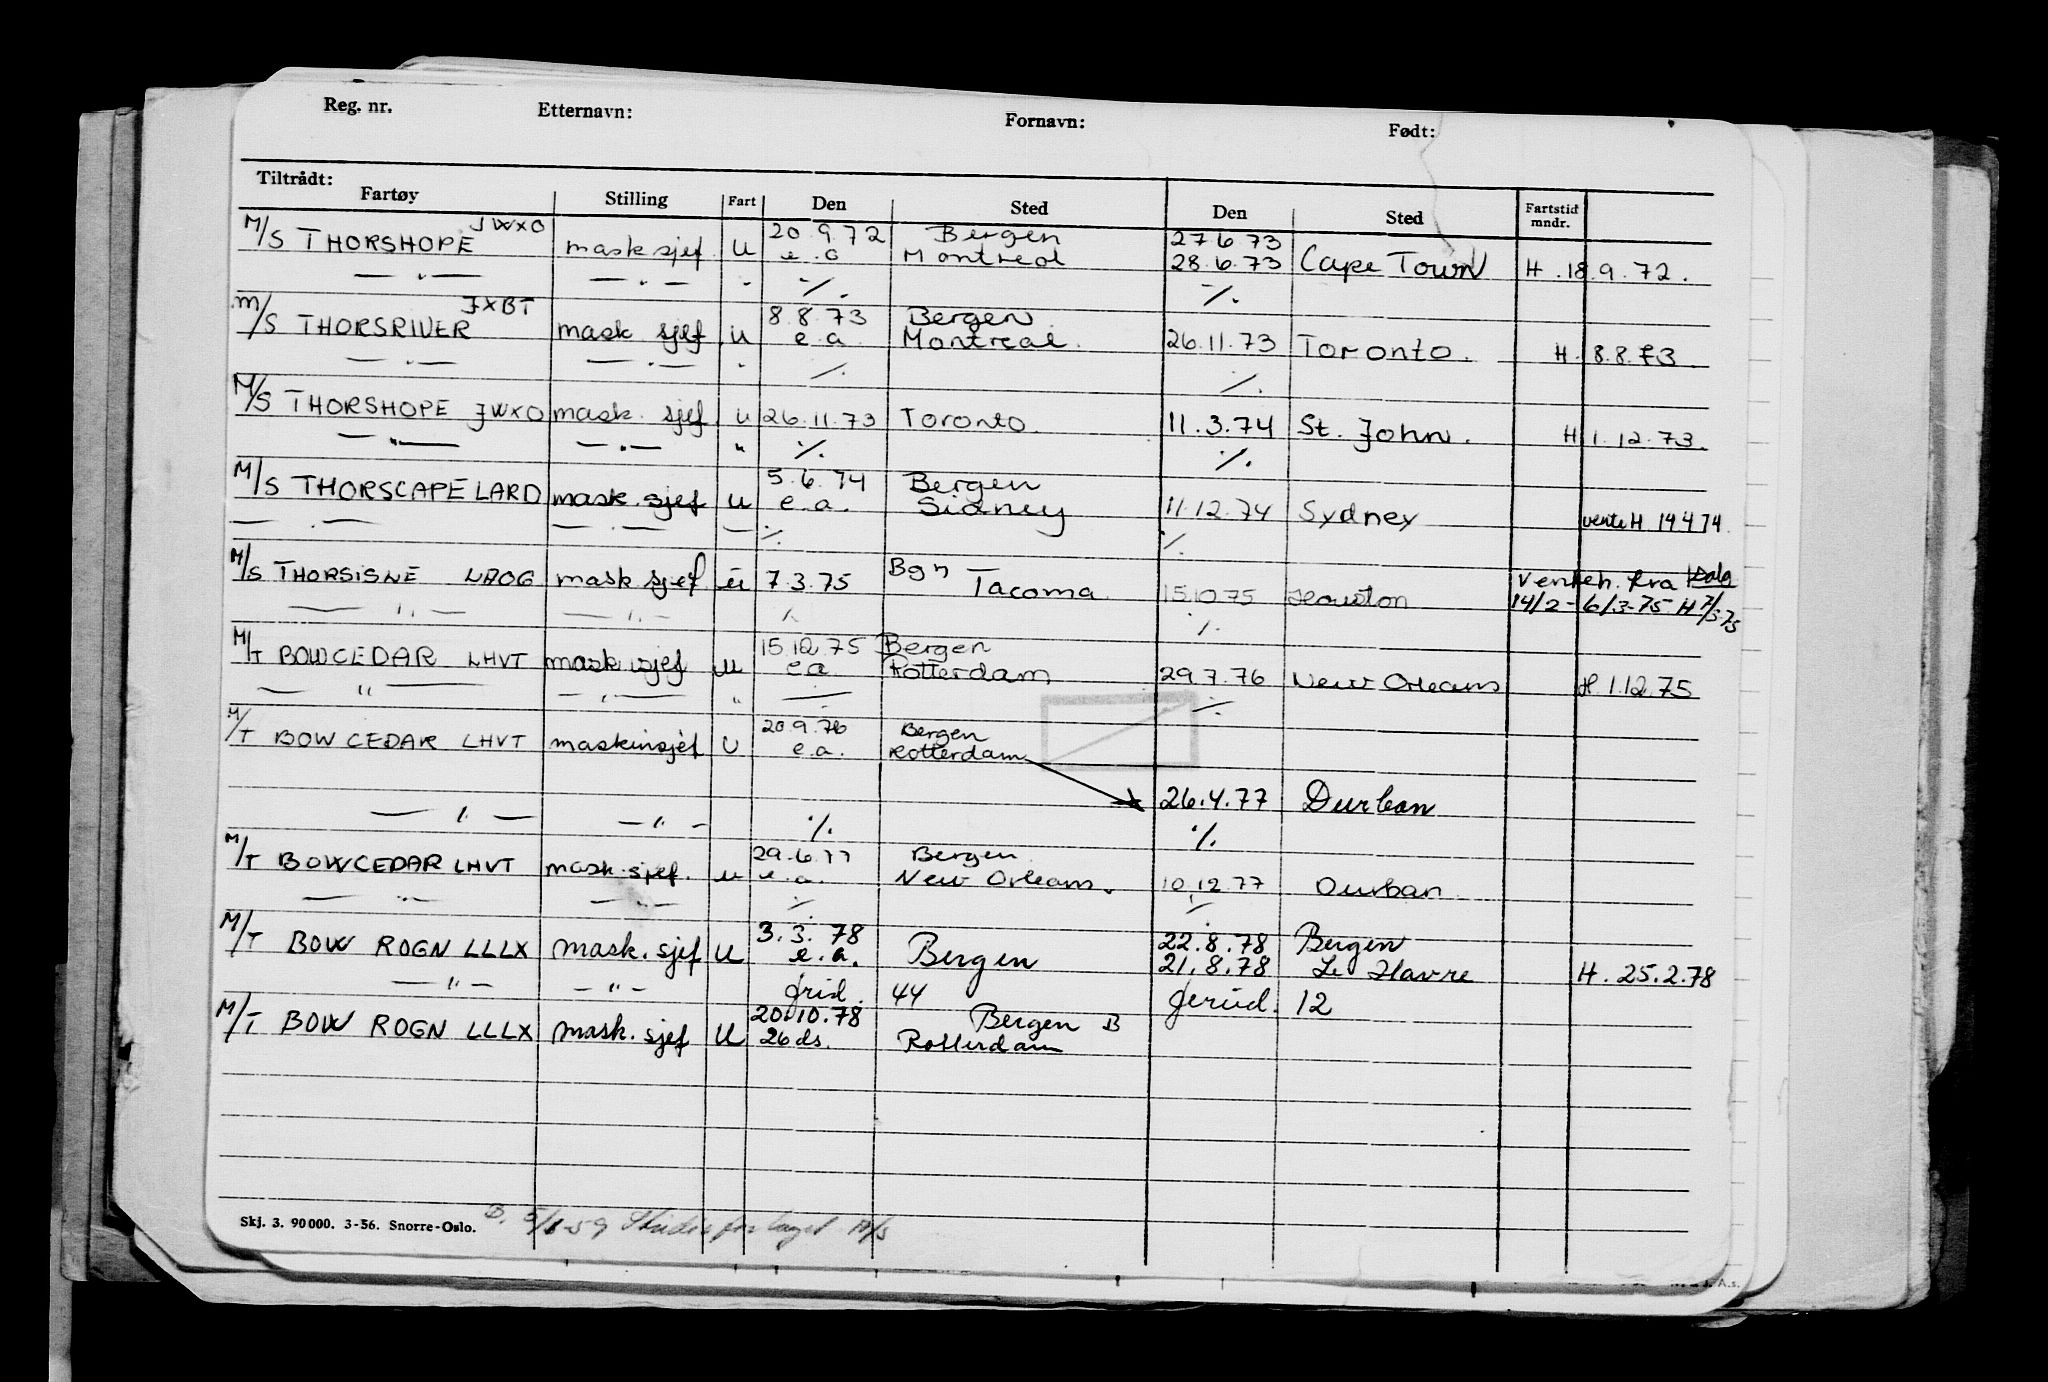 Reg. nr. Etternavn: Fornavn: Født:
Tiltrådt:
Fartøy Stilling Fart Den Sted Den Sted Fartstid mndr.
M/S THORSHOPE JWXO mask sjef U 20.9.72 Bergen 27.6.73
e.a Montreal 28.6.73 Cape Town H. 18.9.72.
— " — — " — " ·/. ·/.
M/S THORSRIVER JXBT mask sjef u 8.8.73 Bergen
e.a. Montreal. 26.11.73 Toronto. H. 8.8.73.
— " — — " — " ·/. ·/.
M/S THORSHOPE JWXO mask. sjef. u 26.11.73 Toronto. 11.3.74 St. John. H 1.12.73.
— " — — " — " ·/. ·/.
M/S THORSCAPE LARD mask. sjef u 5.6.74 Bergen
e.a. Sidney 11.12.74 Sydney vente H 19.4.74.
— " — — " — — ·/. ·/.
M/S THORSISNE mask. sjef. u 7.3.75 Bgn Tacoma. 15.10.75 Houston venteh. fra
14/2 - 6/3-75 H 7/3.75
— " — — " — ·/. ·/.
M/T BOW CEDAR LHVT mask. sjef u 15.12.75 Bergen
e.a Rotterdam 29.7.76 New Orleans H. 1.12.75
— " — — " — " ·/. ·/.
M/T BOW CEDAR LHVT maskinsjef U 20.9.76 Bergen
e.a. Rotterdam
26.4.77 Durban
— " — — " — ·/. ·/.
M/T BOW CEDAR LHVT mask. sjef. u 29.6.77 Bergen.
e.a. New Orleans. 10.12.77 Durban.
— " — — " — ·/. ·/.
M/T BOW ROGN LLLX mask. sjef U 3.3.78 Bergen 22.8.78 Bergen
e.a. 21.8.78 Le Havre H. 25.2.78
— " — — " — 44 12
M/T BOW ROGN LLLX mask. sjef U 20.10.78 Bergen B
26 ds. Rotterdam
Skj. 3. 90000. 3-56. Snorre-Oslo.